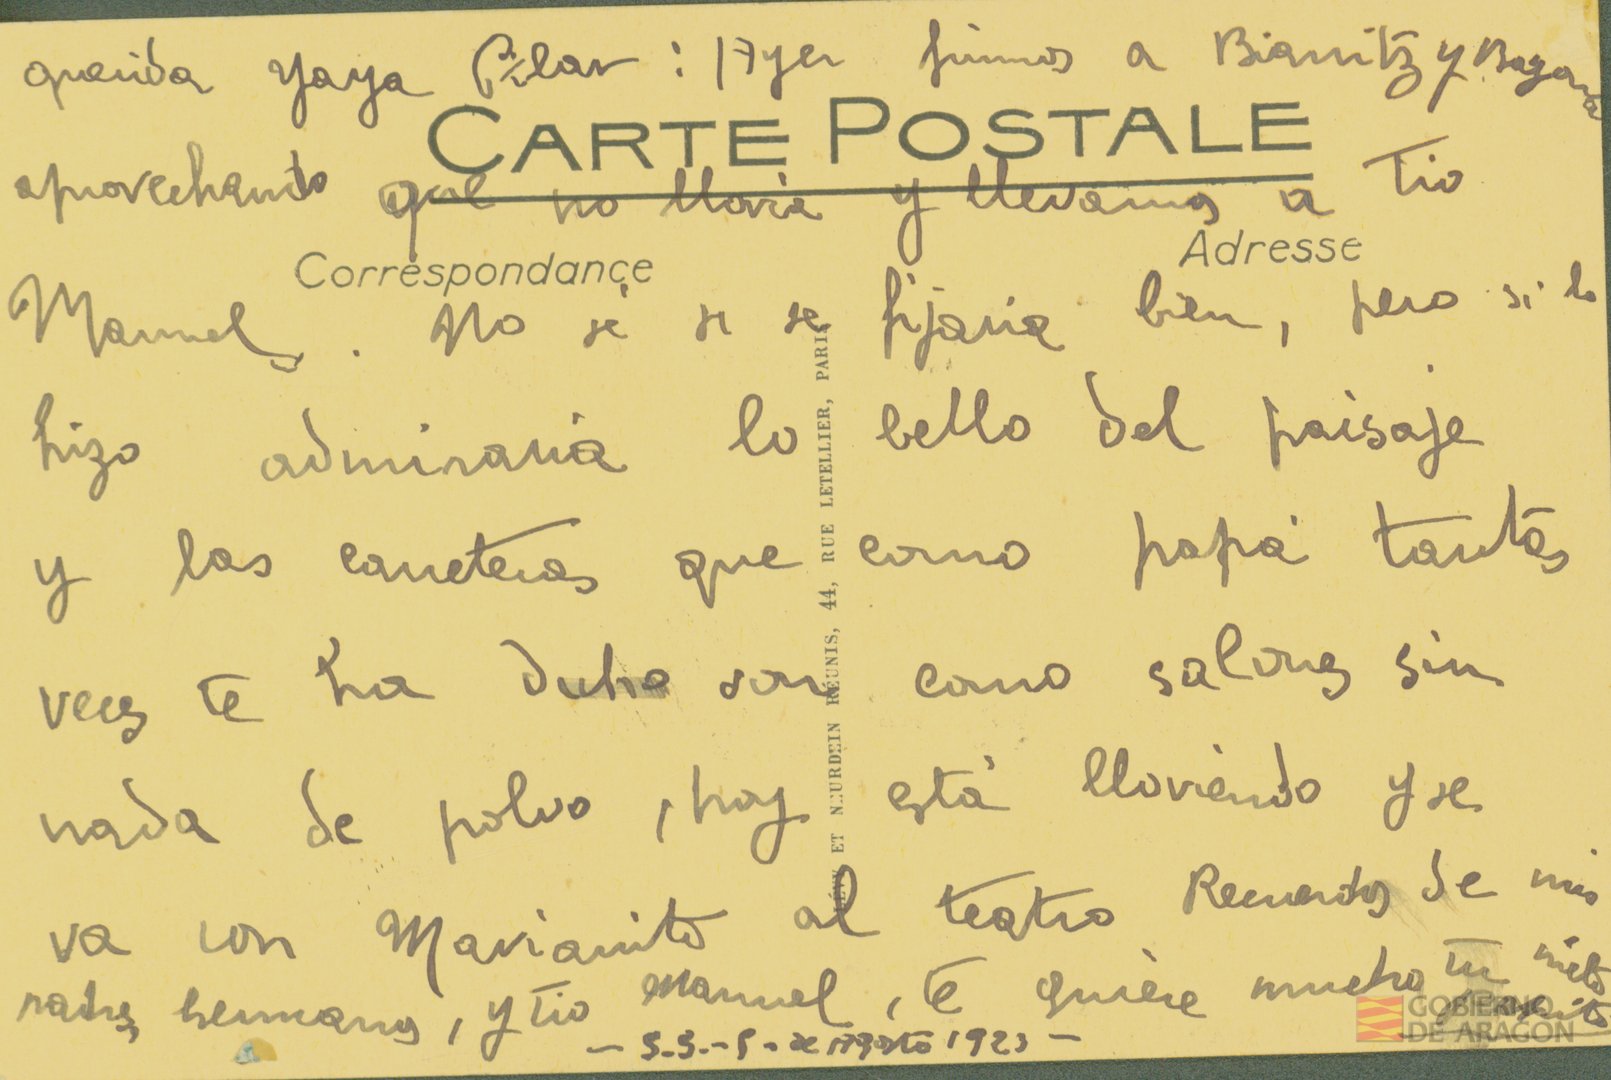 querida Yaya Pilar: Ayer fuimos a Biarritz y Bayona
CARTE POSTALE
aprovechando que no llovia y llevamos a Tio
Correspondance
Adresse
Manuel. No sé si se fijaria bien, pero si lo
hizo admiraria lo bello del paisaje
y las carreteras que como papá tantas
veces te ha dicho son como salones sin
nada de polvo, hoy está lloviendo y se
va con Marianito al teatro Recuerdos de mis
padres hermanos, y tio Manuel, te quiere mucho tu nieto
- S.S. - 5 - de Agosto 1923 -
LÉVY ET NEURDEIN RÉUNIS, 44, RUE LETELLIER, PARIS
GOBIERNO
DE ARAGON